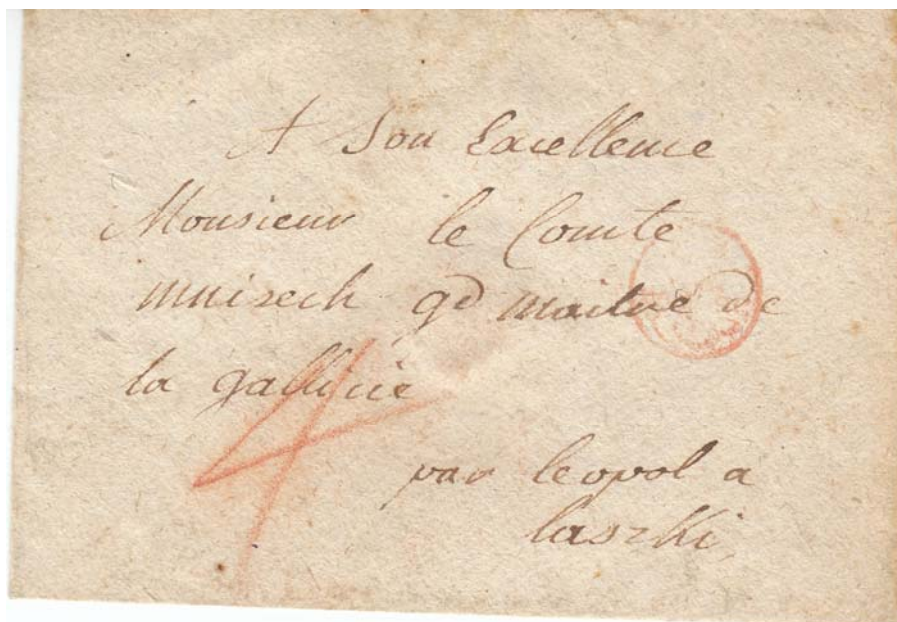 A Son Excellence
Monsieur le Comte
mnisech gd maitre de
la gallicie
4
par leopol a
laszki